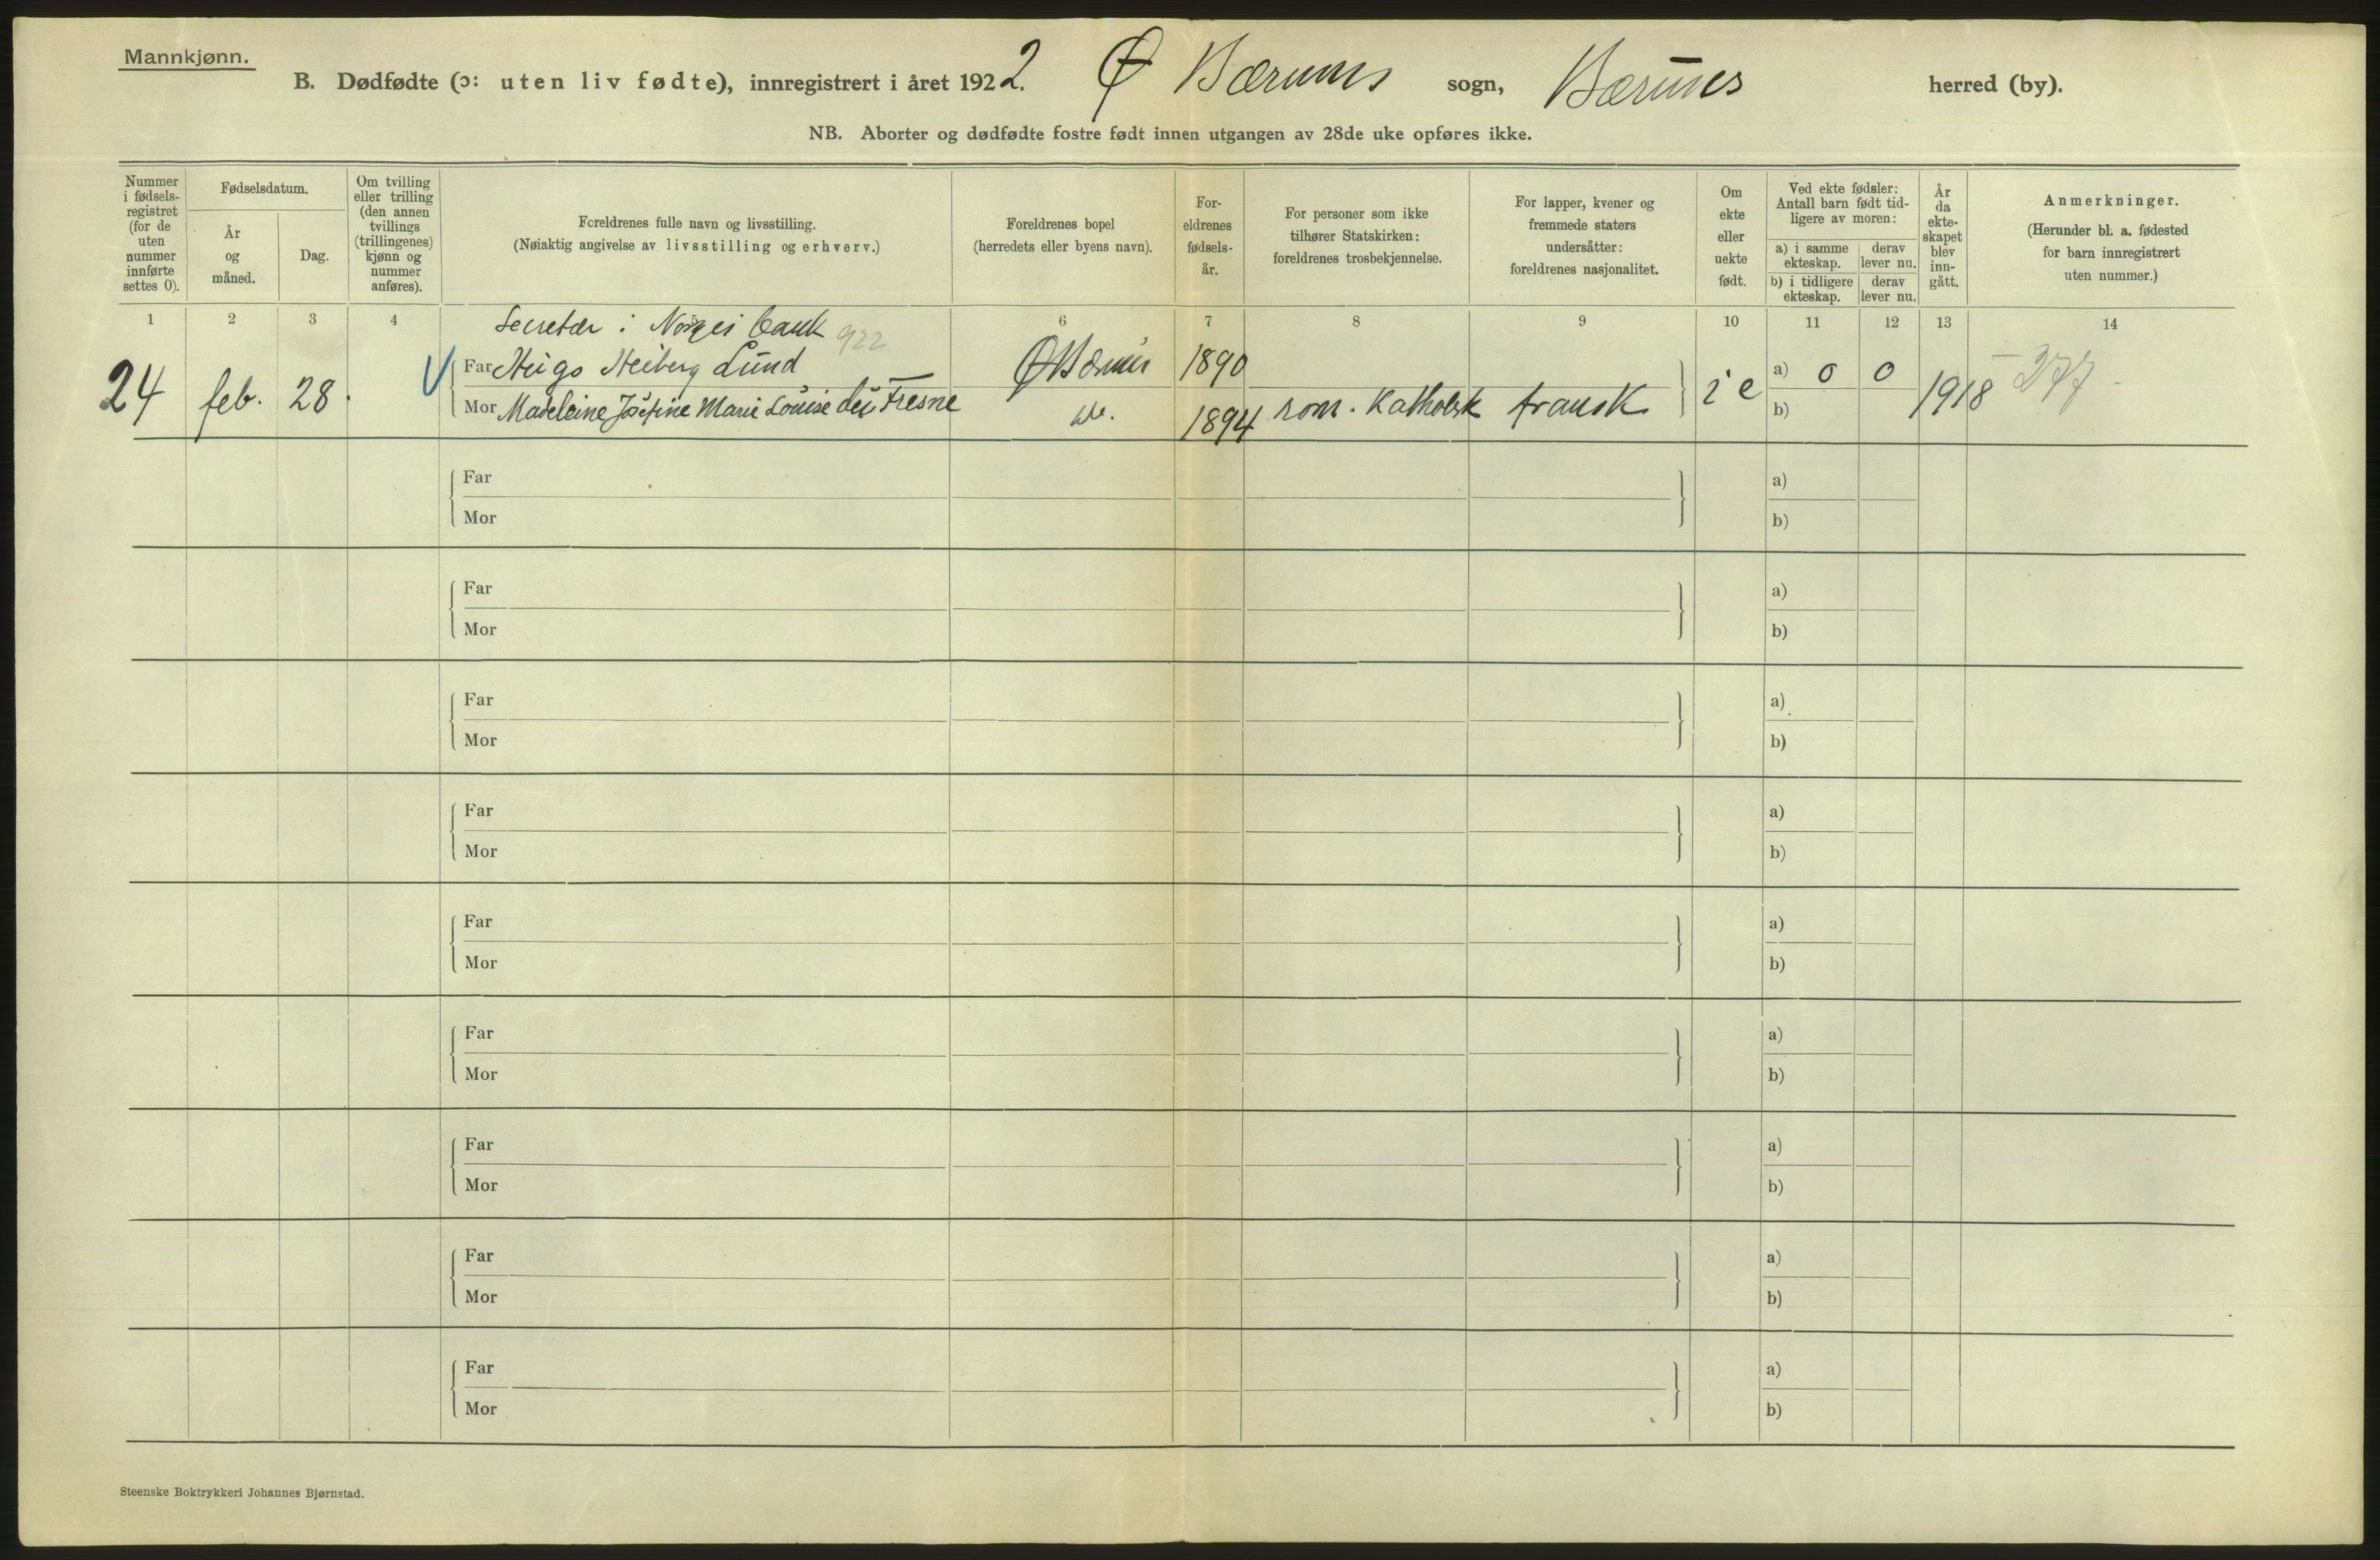 Mannkjønn.
B. Dødfødte (ɔ: uten liv fødte), innregistrert i året 1922. Ø Bærums sogn, Bærums herred (by).
NB. Aborter og dødfødte fostre født innen utgangen av 28de uke opføres ikke.
Nummer i fødsels-registret (for de uten nummer innførte settes 0).
Fødselsdatum.
År og måned.
Dag.
Om tvilling eller trilling (den annen tvillings (trillingenes) kjønn og nummer anføres).
Foreldrenes fulle navn og livsstilling.
(Nøiaktig angivelse av livsstilling og erhverv.)
Foreldrenes bopel
(herredets eller byens navn).
For-eldrenes fødsels-år.
For personer som ikke tilhører Statskirken: foreldrenes trosbekjennelse.
For lapper, kvener og fremmede staters undersåtter: foreldrenes nasjonalitet.
Om ekte eller uekte født.
Ved ekte fødsler: Antall barn født tid-ligere av moren:
a) i samme ekteskap.
derav lever nu.
b) i tidligere ekteskap.
derav lever nu.
År da ekte-skapet blev inn-gått.
Anmerkninger.
(Herunder bl. a. fødested for barn innregistrert uten nummer.)
1 2 3 4 6 7 8 9 10 11 12 13 14
Secretær i Norges bank 922
24 feb. 28. Far Hugo Heiberg Lund Ø Bærum 1890 i e a) 0 0 1918 277
Mor Madeleine Josefine Marie Louise du Fresne do. 1894 rom. Katholsk fransk b)
Far a)
Mor b)
Far a)
Mor b)
Far a)
Mor b)
Far a)
Mor b)
Far a)
Mor b)
Far a)
Mor b)
Far a)
Mor b)
Far a)
Mor b)
Far a)
Mor b)
Steenske Boktrykkeri Johannes Bjørnstad.